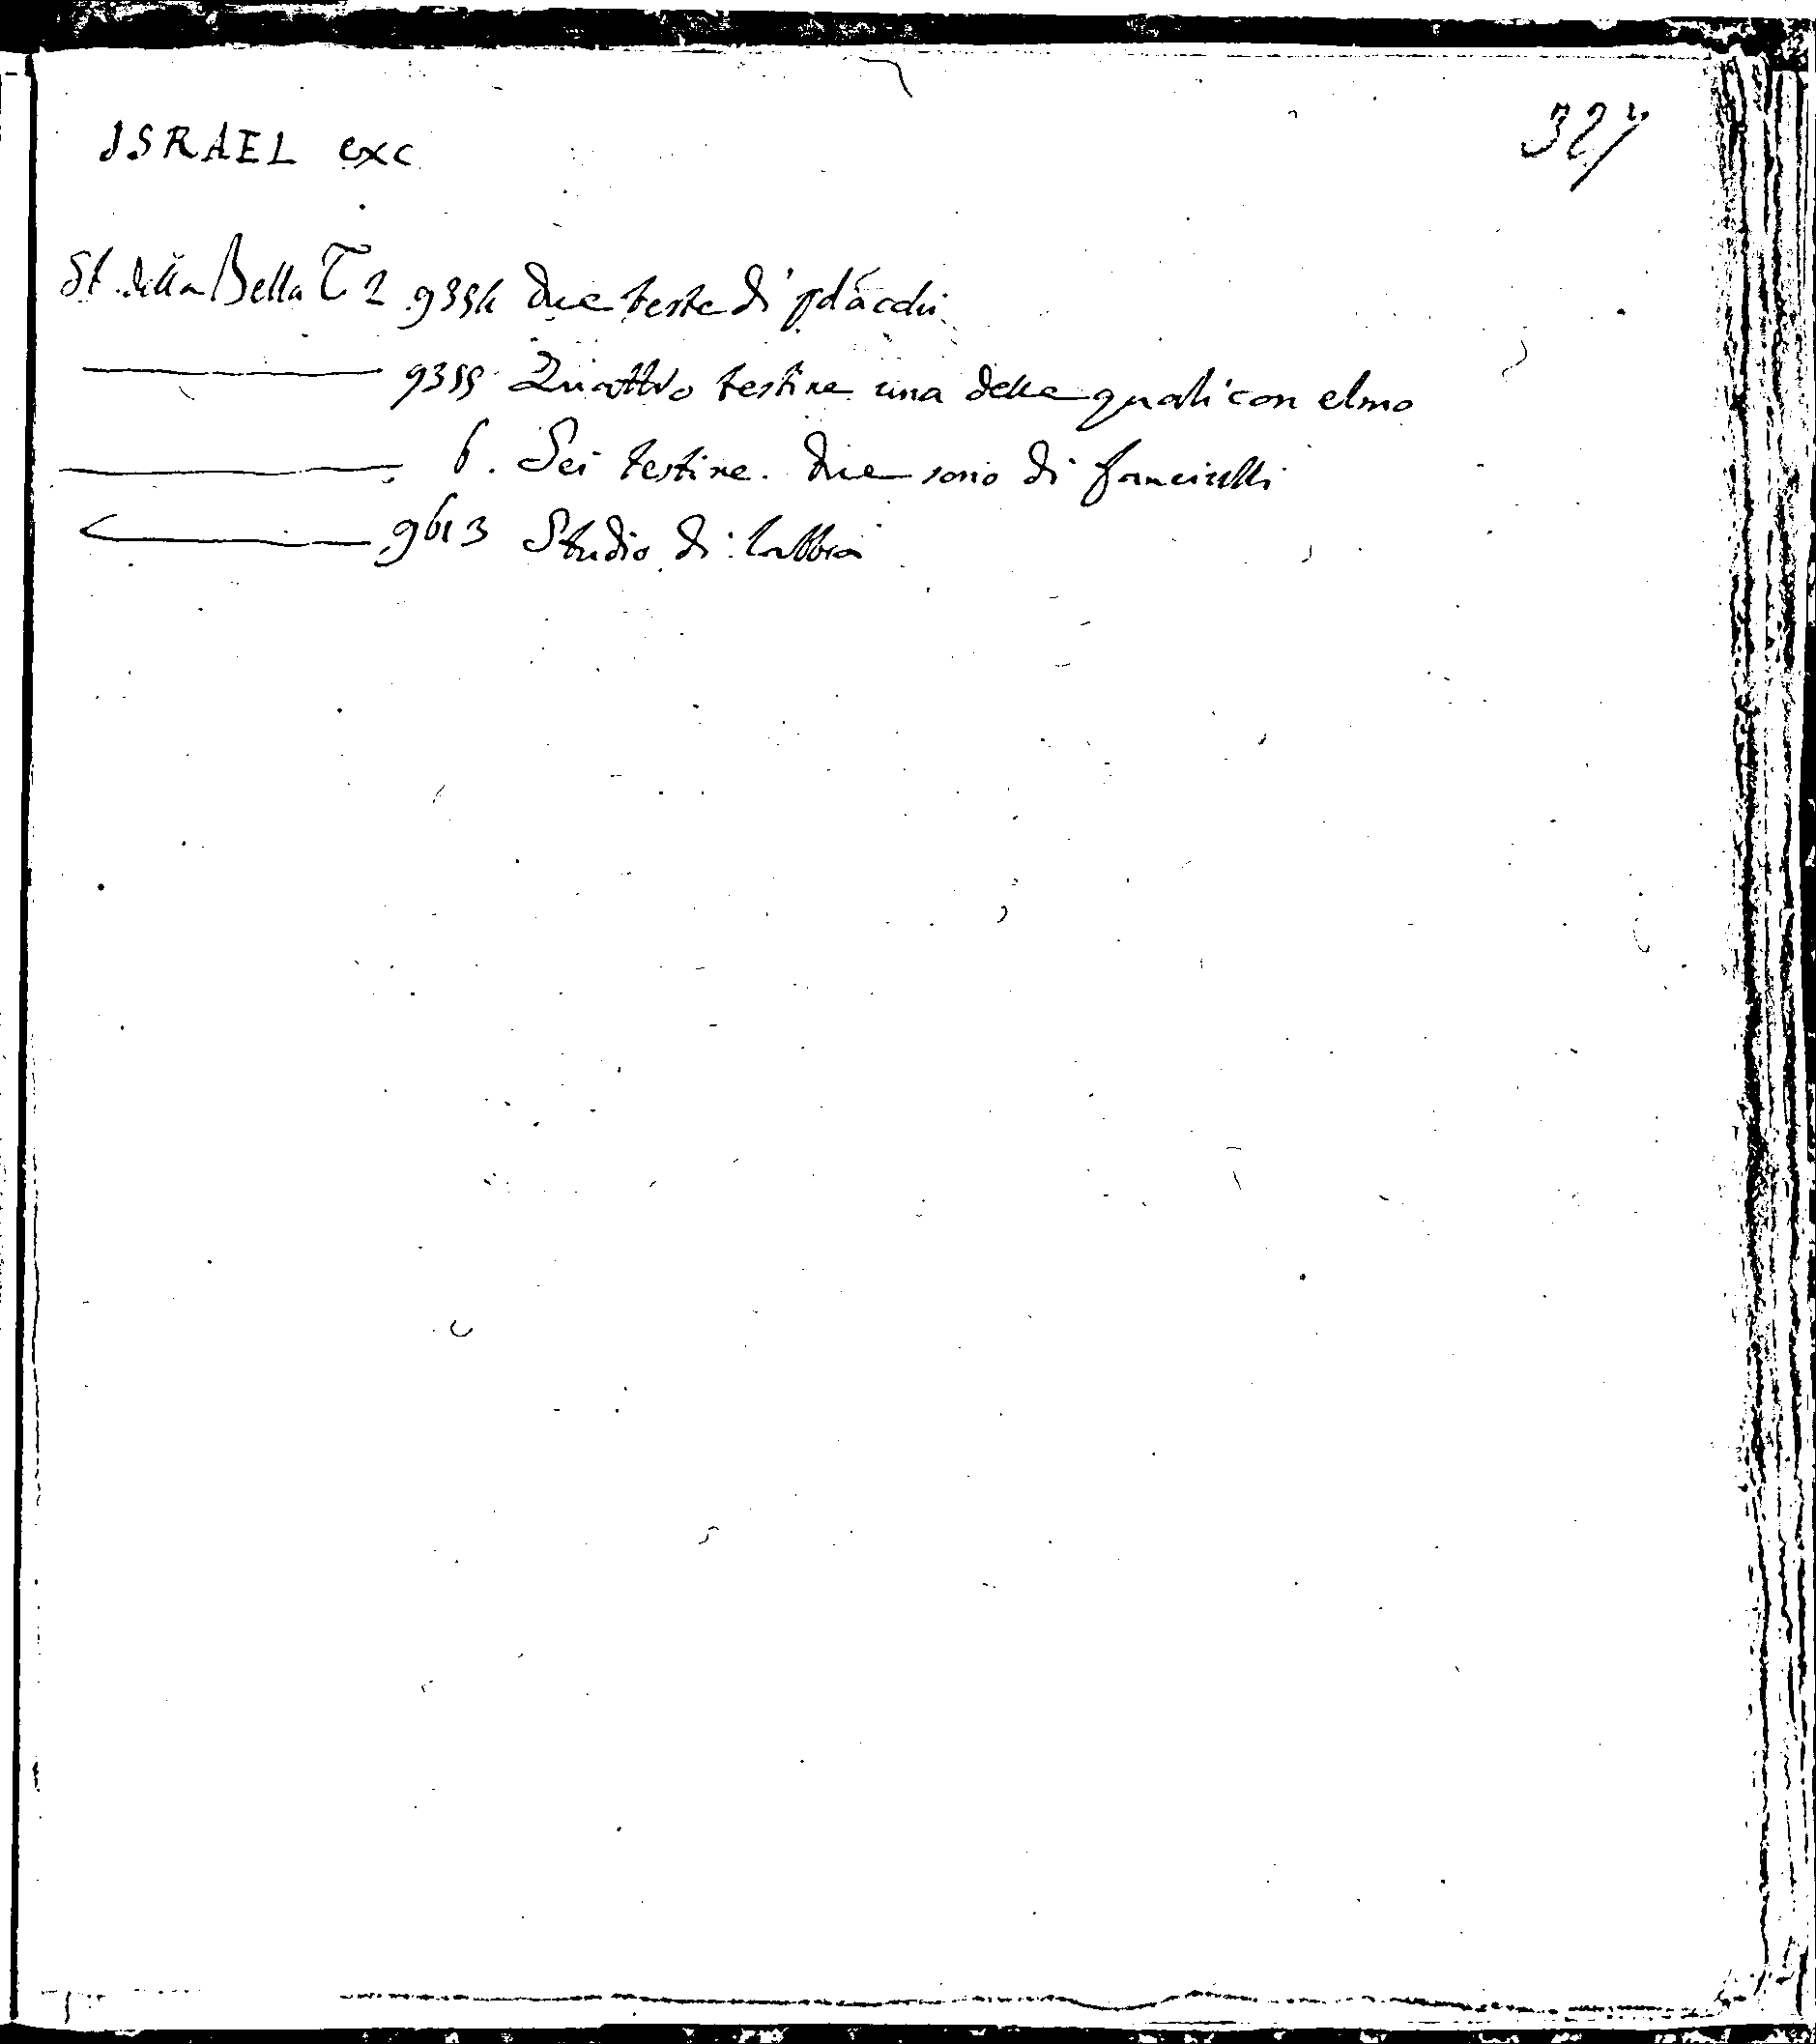 ISRAEL exc
327
St. della Bella T 2 9354 Due teste di polacchi
9355 Quattro testine una delle quali con elmo
6. Sei testine. Due sono di fanciulli
9613 Studio di labbra